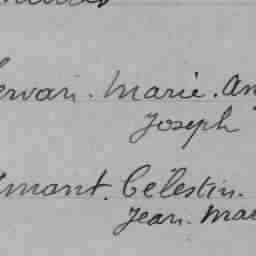 ervan. Marie. An
Joseph
mant. Célestin.
Jean. Mar